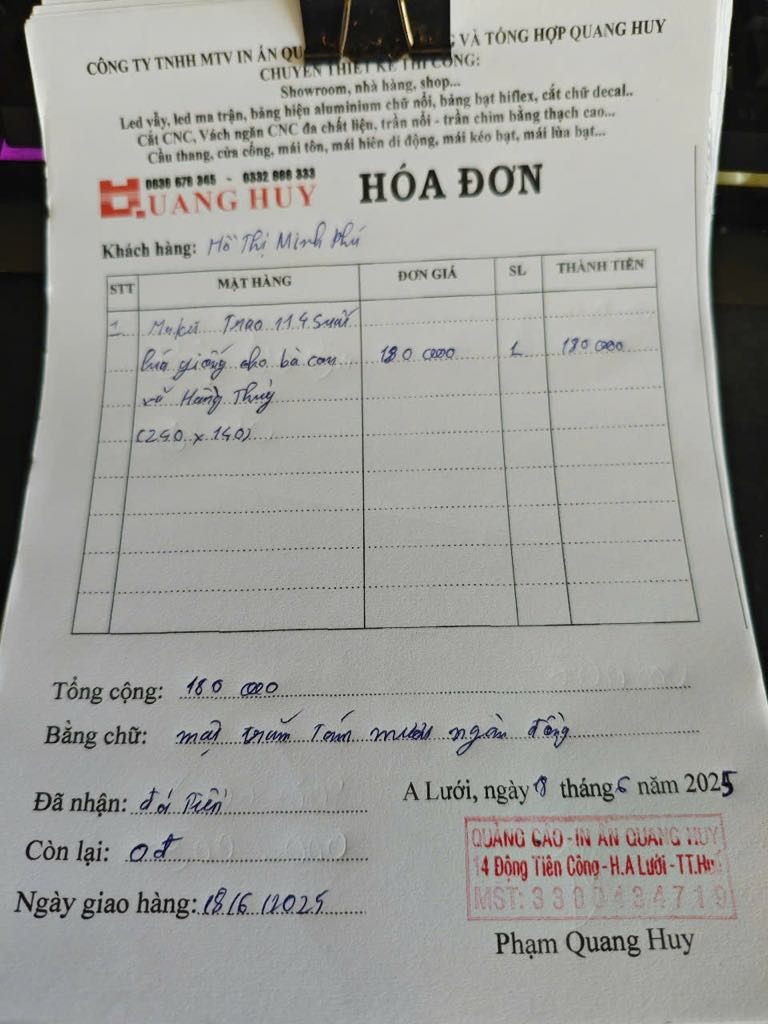 CÔNG TY TNHH MTV IN ẤN QU G VÀ TỔNG HỢP QUANG HUY
CHUYÊN THIẾT KẾ THI CÔNG:
Showroom, nhà hàng, shop...
Led vẫy, led ma trận, bảng hiệu aluminium chữ nổi, bảng bạt hiflex, cắt chữ decal..
Cắt CNC, Vách ngăn CNC đa chất liệu, trần nổi - trần chìm bằng thạch cao...
Cầu thang, cửa cổng, mái tôn, mái hiên di động, mái kéo bạt, mái lùa bạt...
0836 678 365 - 0332 886 333
QUANG HUY
HÓA ĐƠN
Khách hàng: Hồ Thị Minh Phú
STT MẶT HÀNG ĐƠN GIÁ SL THÀNH TIỀN
1 Trao 114 Suất
lúa giống cho bà con 180 000 1 180 000
xã Hồng Thủy
(240 x 140)
Tổng cộng: 180 000
Bằng chữ: một trăm tám mươi ngàn đồng
Đã nhận: đủ tiền
Còn lại: 0đ
Ngày giao hàng: 18/6/2025
A Lưới, ngày 18 tháng 6 năm 2025
QUẢNG CÁO - IN ẤN QUANG HUY
14 Động Tiên Công - H.A Lưới - TT.Huế
MST: 3300424719
Phạm Quang Huy